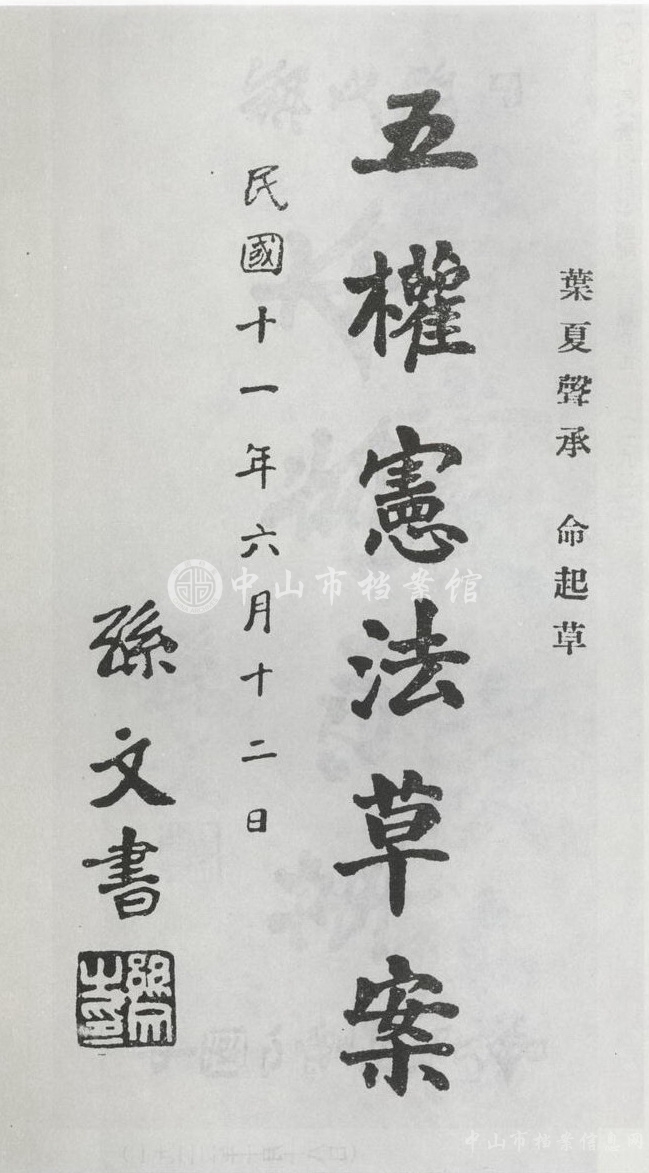 葉夏聲承　命起草
五權憲法草案
民國十一年六月十二日
孫文書
孫文之印
中山市档案馆
中山市档案信息网